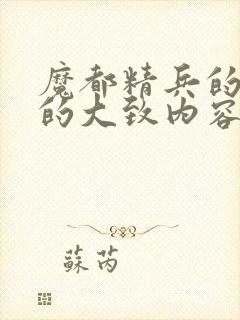 魔都精兵的
的大致内容
蘇芮